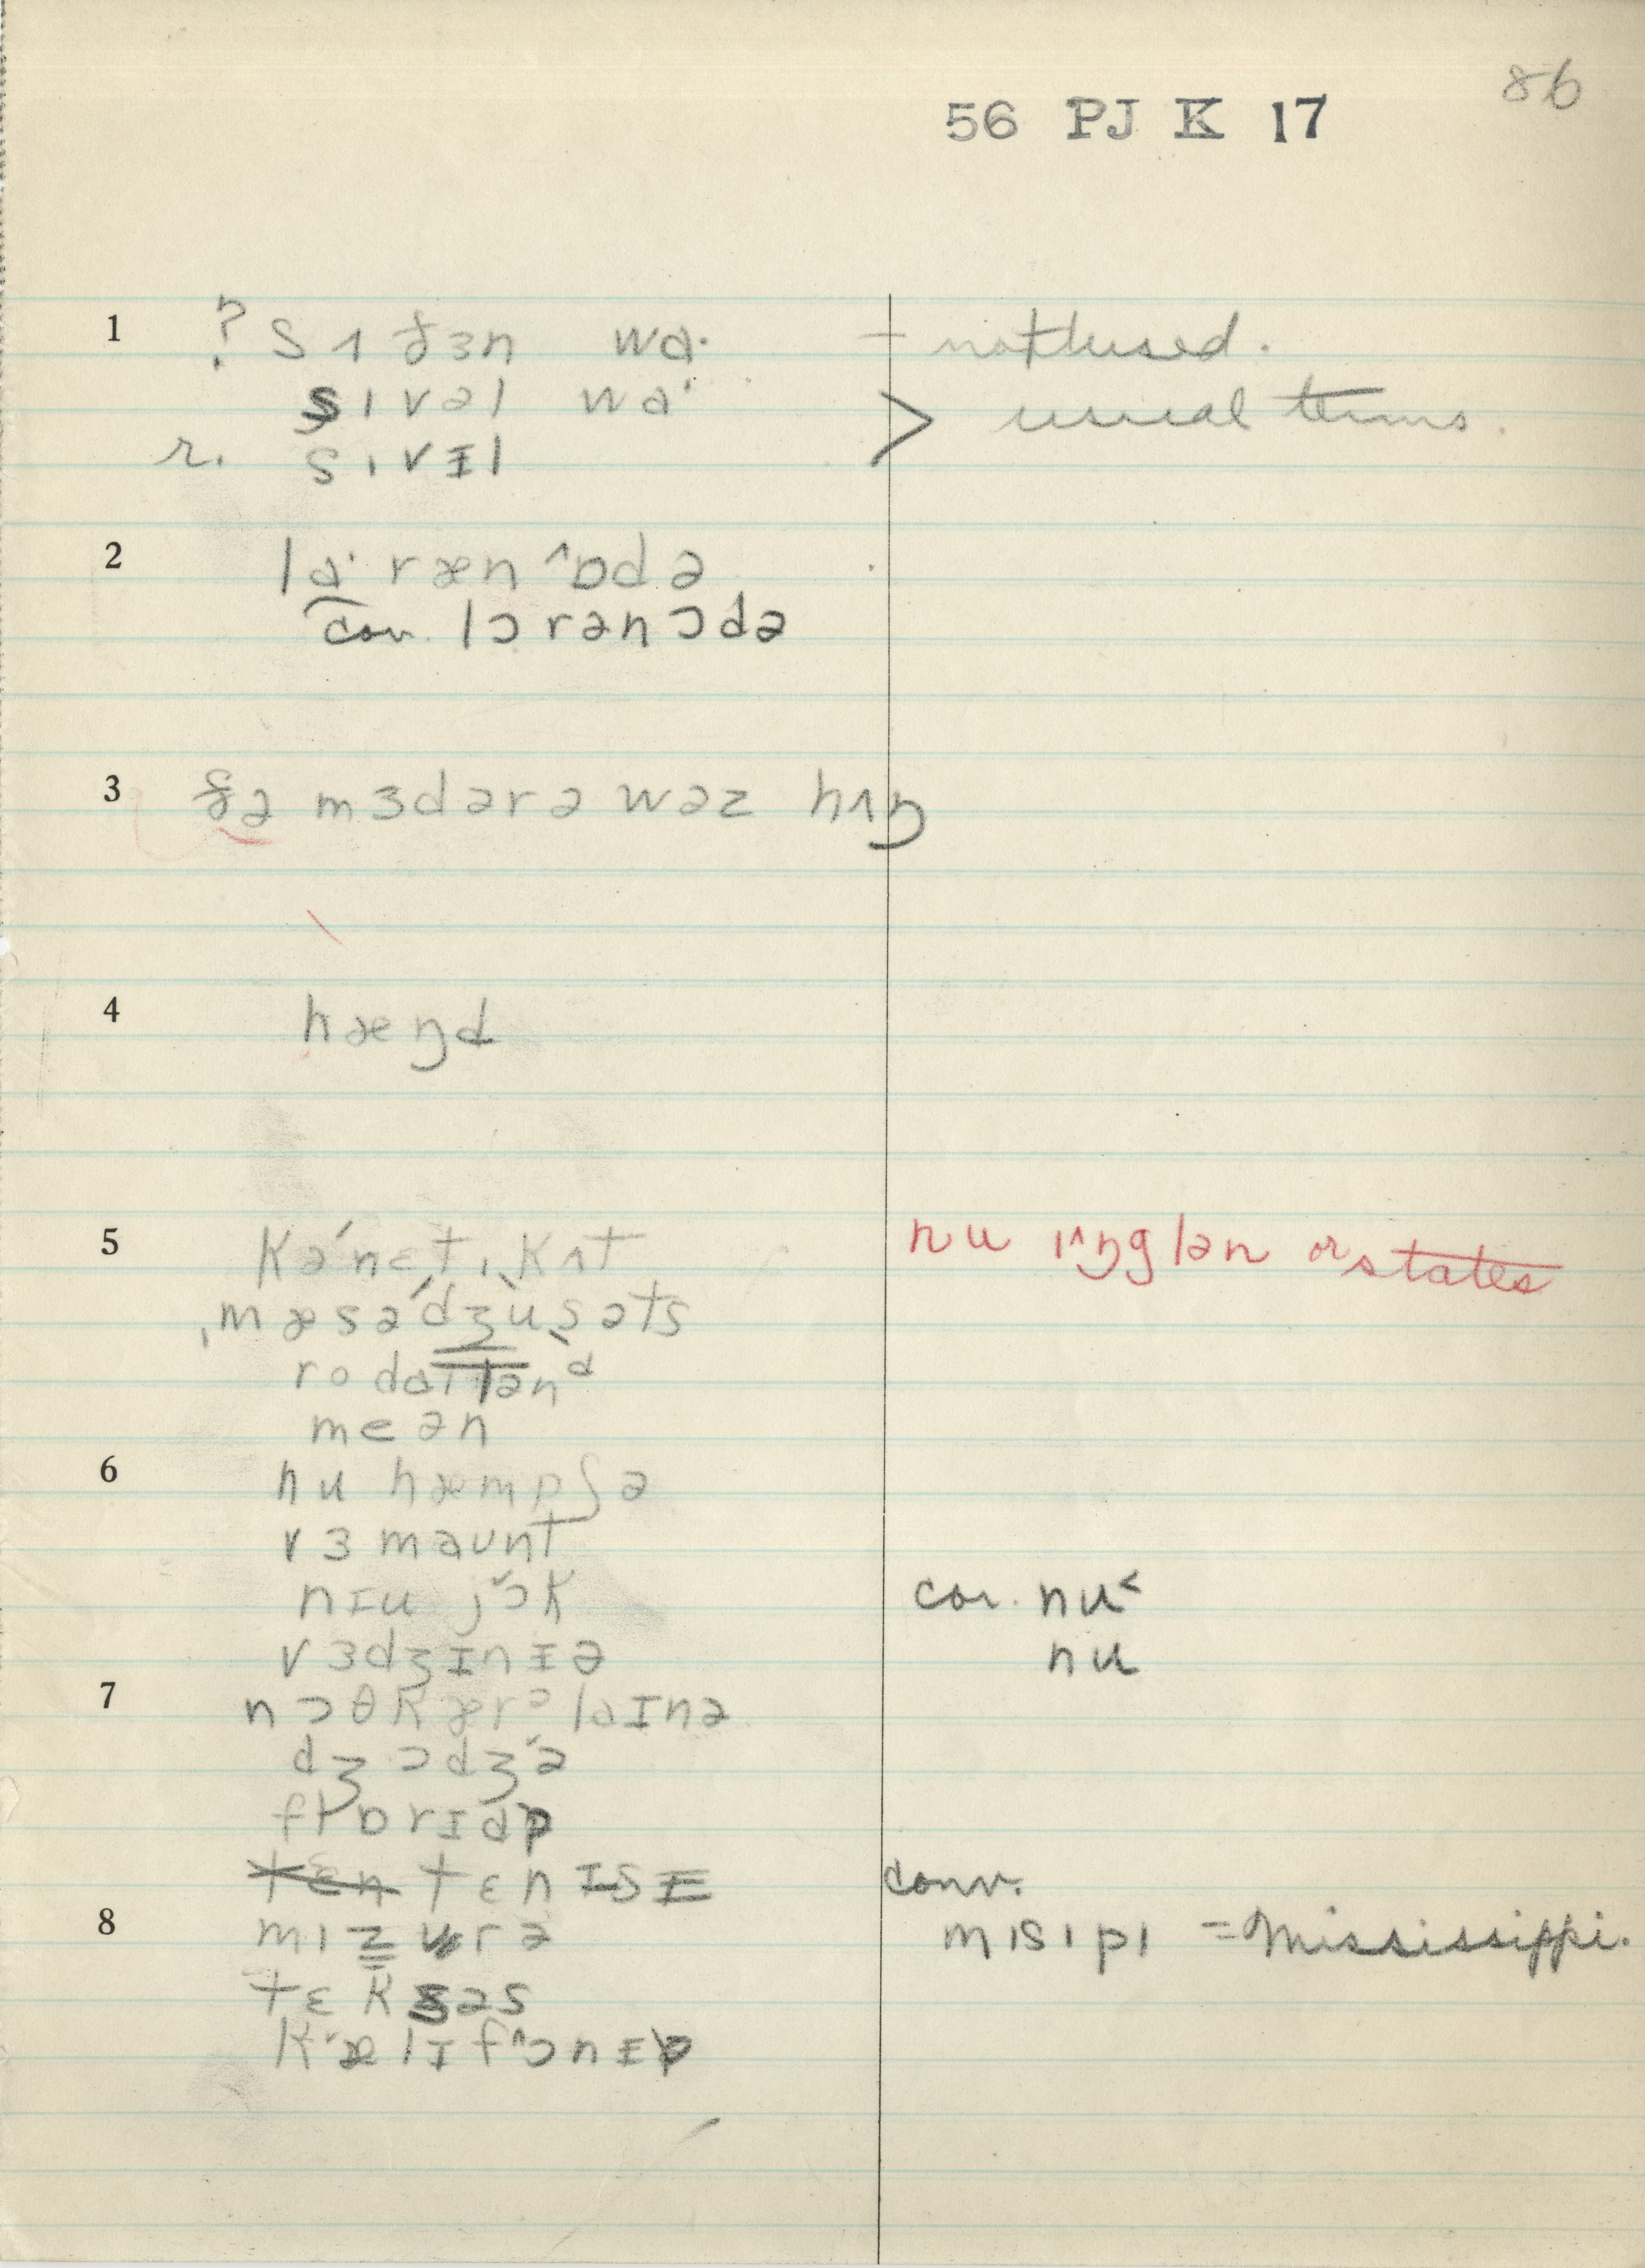 86
56 PJ K 17
1 ? sʌðɜn wɑ· – not used.
sıvəl wɑ· > usual terms.
r. sıvɪl
2 lɑ· ræn^ɒdə
cov. lɔrənɔdə
3 ðə mɜdərə wəz hʌŋ
4 hæŋd
5 kə'nɛtıkʌt nu ı^ŋglən or states
ˌmæsə'dʒusəts
rodɑɪlənd
meən
6 nu hæmpʃə
vɜmaunt
nɪu jɔk cov. nu<
vɜdʒɪnɪə nu
7 nɔθkærəlɑɪnə
dʒɔdʒə
flɒrɪdə
tɛn tɛnɪsɪ conv.
8 mızurə mısıpı = Mississippi.
tɛksəs
kælɪf^ɔnɪə